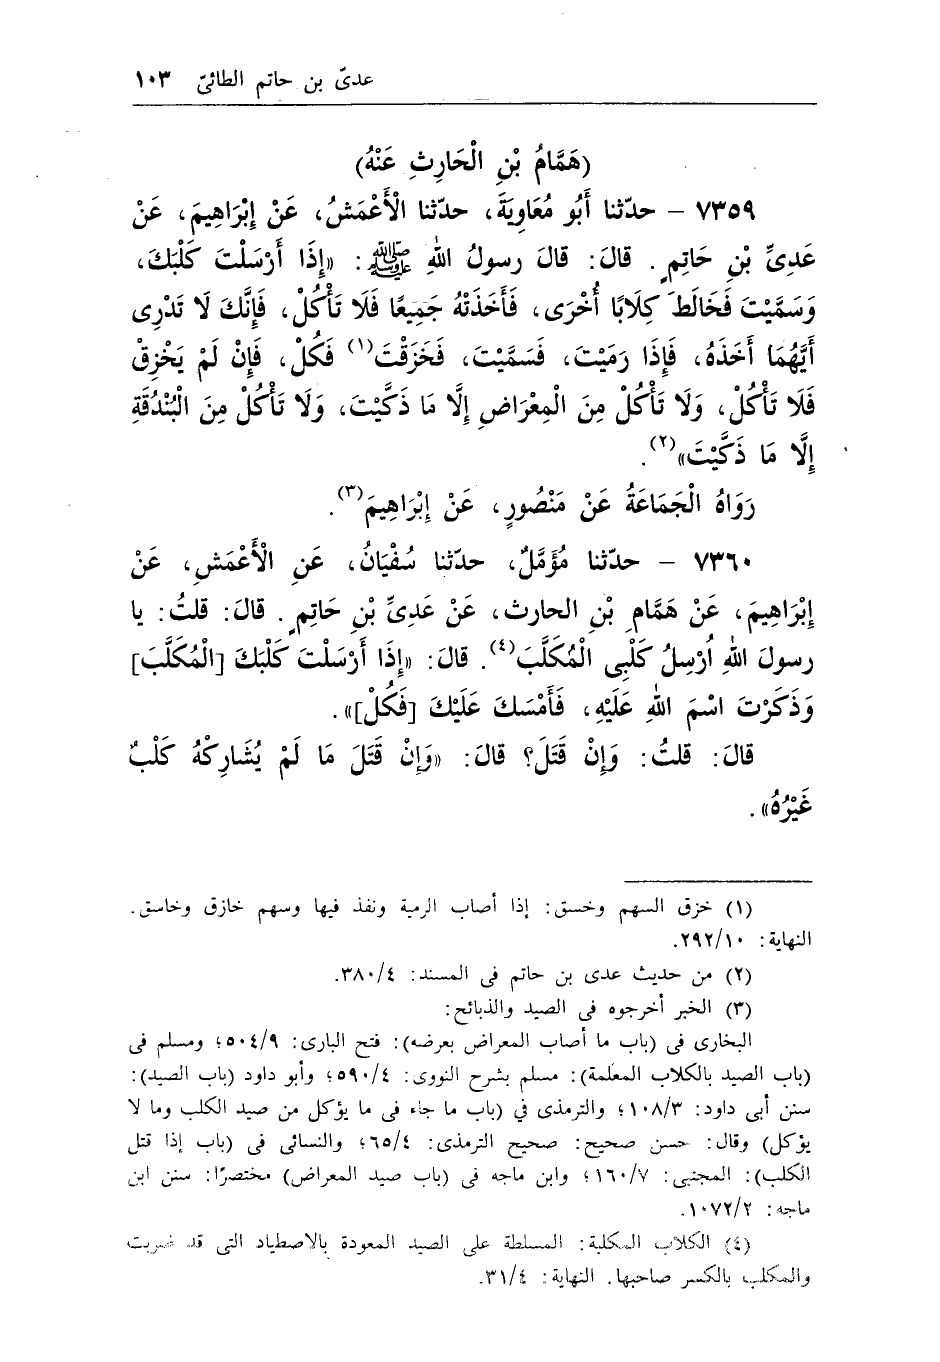 عدىّ بن حاتم الطائىّ ١٠٣
(هَمَّامُ بْنِ الْحَارِثِ عَنْهُ)
٧٣٥٩ – حدّثنا أَبُو مُعَاوِيَةَ، حدّثنا الْأَعْمَشُ، عَنْ إِبْرَاهِيمَ، عَنْ
عَدِىِّ بْنِ حَاتِمٍ. قالَ: قالَ رسولُ اللهِ ﷺ: «إِذَا أَرْسَلْتَ كَلْبَكَ،
وَسَمَّيْتَ فَخَالَطَ كِلَابًا أُخْرَى، فَأَخَذَتْهُ جَمِيعًا فَلَا تَأْكُلْ، فَإِنَّكَ لَا تَدْرِى
أَيَّهُمَا أَخَذَهُ، فَإِذَا رَمَيْتَ، فَسَمَّيْتَ، فَخَزَقْتَ(١) فَكُلْ، فَإِنْ لَمْ يَخْزِقْ
فَلَا تَأْكُلْ، وَلَا تَأْكُلْ مِنَ الْمِعْرَاضِ إِلَّا مَا ذَكَّيْتَ، وَلَا تَأْكُلْ مِنَ الْبُنْدُقَةِ
إِلَّا مَا ذَكَّيْتَ»(٢).
رَوَاهُ الْجَمَاعَةُ عَنْ مَنْصُورٍ، عَنْ إِبْرَاهِيمَ(٣).
٧٣٦٠ – حدّثنا مُؤَمَّلٌ، حدّثنا سُفْيَانُ، عَنِ الْأَعْمَشِ، عَنْ
إِبْرَاهِيمَ، عَنْ هَمَّامِ بْنِ الحارث، عَنْ عَدِىِّ بْنِ حَاتِمٍ. قالَ: قلتُ: يا
رسولَ اللهِ أُرْسِلُ كَلْبِى الْمُكَلَّبَ(٤). قالَ: «إِذَا أَرْسَلْتَ كَلْبَكَ [الْمُكَلَّبَ]
وَذَكَرْتَ اسْمَ اللهِ عَلَيْهِ، فَأَمْسَكَ عَلَيْكَ [فَكُلْ]».
قالَ: قلتُ: وَإِنْ قَتَلَ؟ قالَ: «وَإِنْ قَتَلَ مَا لَمْ يُشَارِكْهُ كَلْبٌ
غَيْرُهُ».
(١) خزق السهم وخسق: إذا أصاب الرمية ونفذ فيها وسهم خازق وخاسق.
النهاية: ٢٩٢/١٠.
(٢) من حديث عدى بن حاتم فى المسند: ٣٨٠/٤.
(٣) الخبر أخرجوه فى الصيد والذبائح:
البخارى فى (باب ما أصاب المعراض بعرضه): فتح البارى: ٥٠٤/٩؛ ومسلم فى
(باب الصيد بالكلاب المعلمة): مسلم بشرح النووى: ٥٩٠/٤؛ وأبو داود (باب الصيد):
سنن أبى داود: ١٠٨/٣؛ والترمذى في (باب ما جاء فى ما يؤكل من صيد الكلب وما لا
يؤكل) وقال: حسن صحيح: صحيح الترمذى: ٦٥/٤؛ والنسائى فى (باب إذا قتل
الكلب): المجتبى: ١٦٠/٧؛ وابن ماجه فى (باب صيد المعراض) مختصرًا: سنن ابن
ماجه: ١٠٧٢/٢.
(٤) الكلاب المكلبة: المسلطة على الصيد المعودة بالاصطياد التى قد ضريت
والمكلب بالكسر صاحبها. النهاية: ٣١/٤.